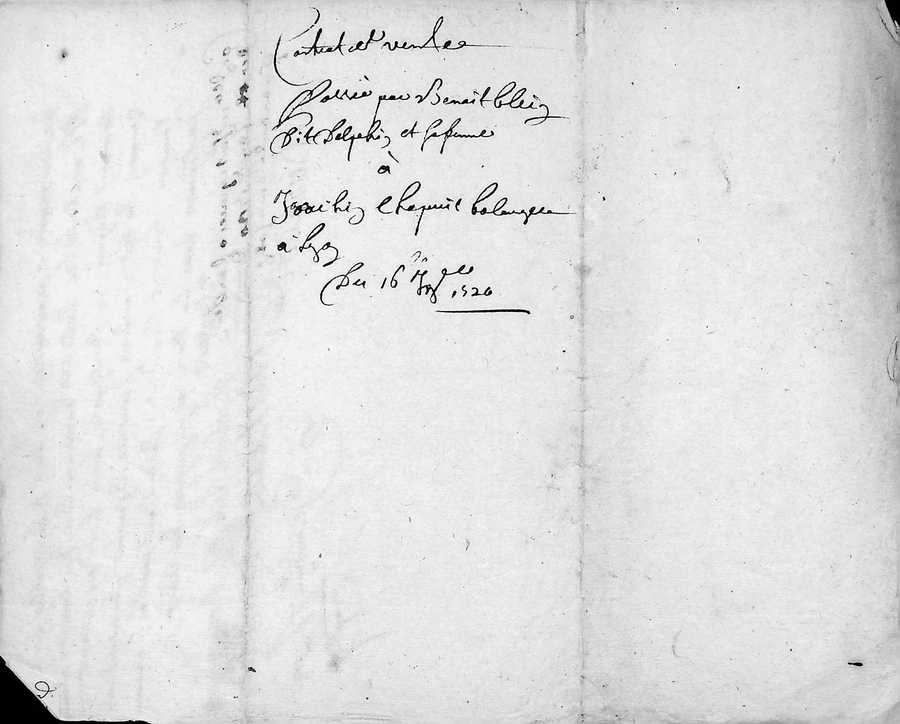 Contract de vente
Passée par Benoit Clei
Dit Delphin et sa femme
à
Joachin Chapuit bolangeer
à Lyon
Du 16 1520
D.